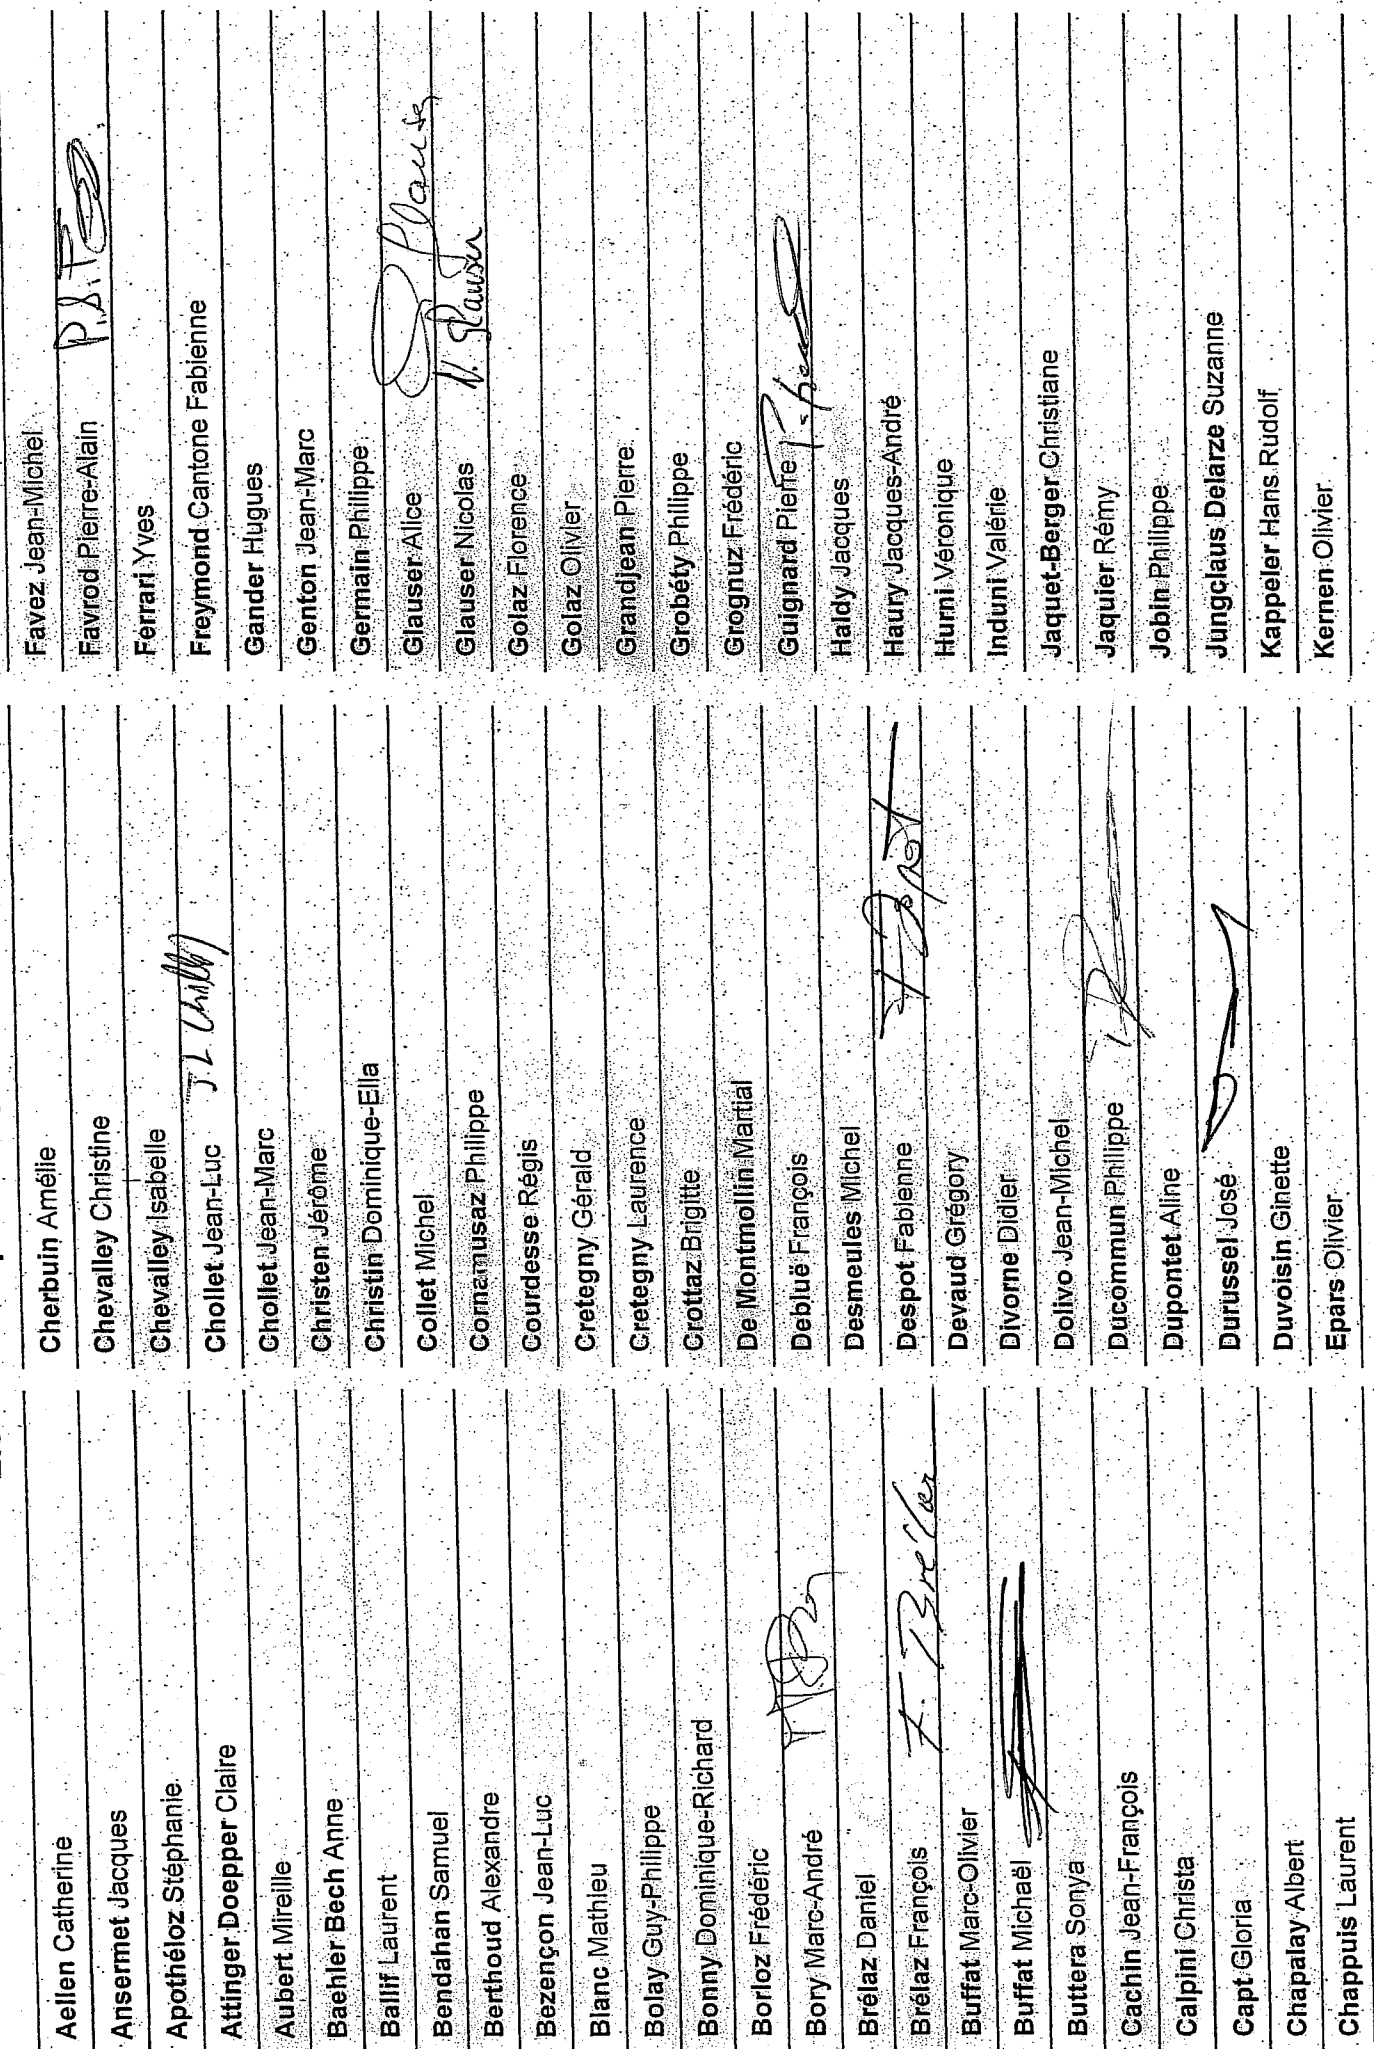 Aellen Catherine
Ansermet Jacques
Apothéloz Stéphanie
Attinger Doepper Claire
Aubert Mireille
Baehler Bech Anne
Ballif Laurent
Bendahan Samuel
Berthoud Alexandre
Bezençon Jean-Luc
Blanc Mathieu
Bolay Guy-Philippe
Bonny Dominique-Richard
Borloz Frédéric
Bory Marc-André
Brélaz Daniel
Brélaz François F. Brélaz
Buffat Marc-Olivier
Buffat Michaël
Buttera Sonya
Cachin Jean-François
Calpini Christa
Capt Gloria
Chapalay Albert
Chappuis Laurent
Cherbuin Amélie
Chevalley Christine
Chevalley Isabelle
Chollet Jean-Luc
Chollet Jean-Marc
Christen Jérôme
Christin Dominique-Ella
Collet Michel
Cornamusaz Philippe
Courdesse Régis
Cretegny Gérald
Cretegny Laurence
Crottaz Brigitte
De Montmollin Martial
Debluë François
Desmeules Michel
Despot Fabienne
Devaud Grégory
Divorne Didier
Dolivo Jean-Michel
Ducommun Philippe
Dupontet Aline
Durussel José
Duvoisin Ginette
Epars Olivier
Favez Jean-Michel
Favrod Pierre-Alain
Ferrari Yves
Freymond Cantone Fabienne
Gander Hugues
Genton Jean-Marc
Germain Philippe
Glauser Alice Glauser
Glauser Nicolas N. Glauser
Golaz Florence
Golaz Olivier
Grandjean Pierre
Grobéty Philippe
Grognuz Frédéric
Guignard Pierre
Haldy Jacques
Haury Jacques-André
Hurni Véronique
Induni Valérie
Jaquet-Berger Christiane
Jaquier Rémy
Jobin Philippe
Jungclaus Delarze Suzanne
Kappeler Hans Rudolf
Kernen Olivier